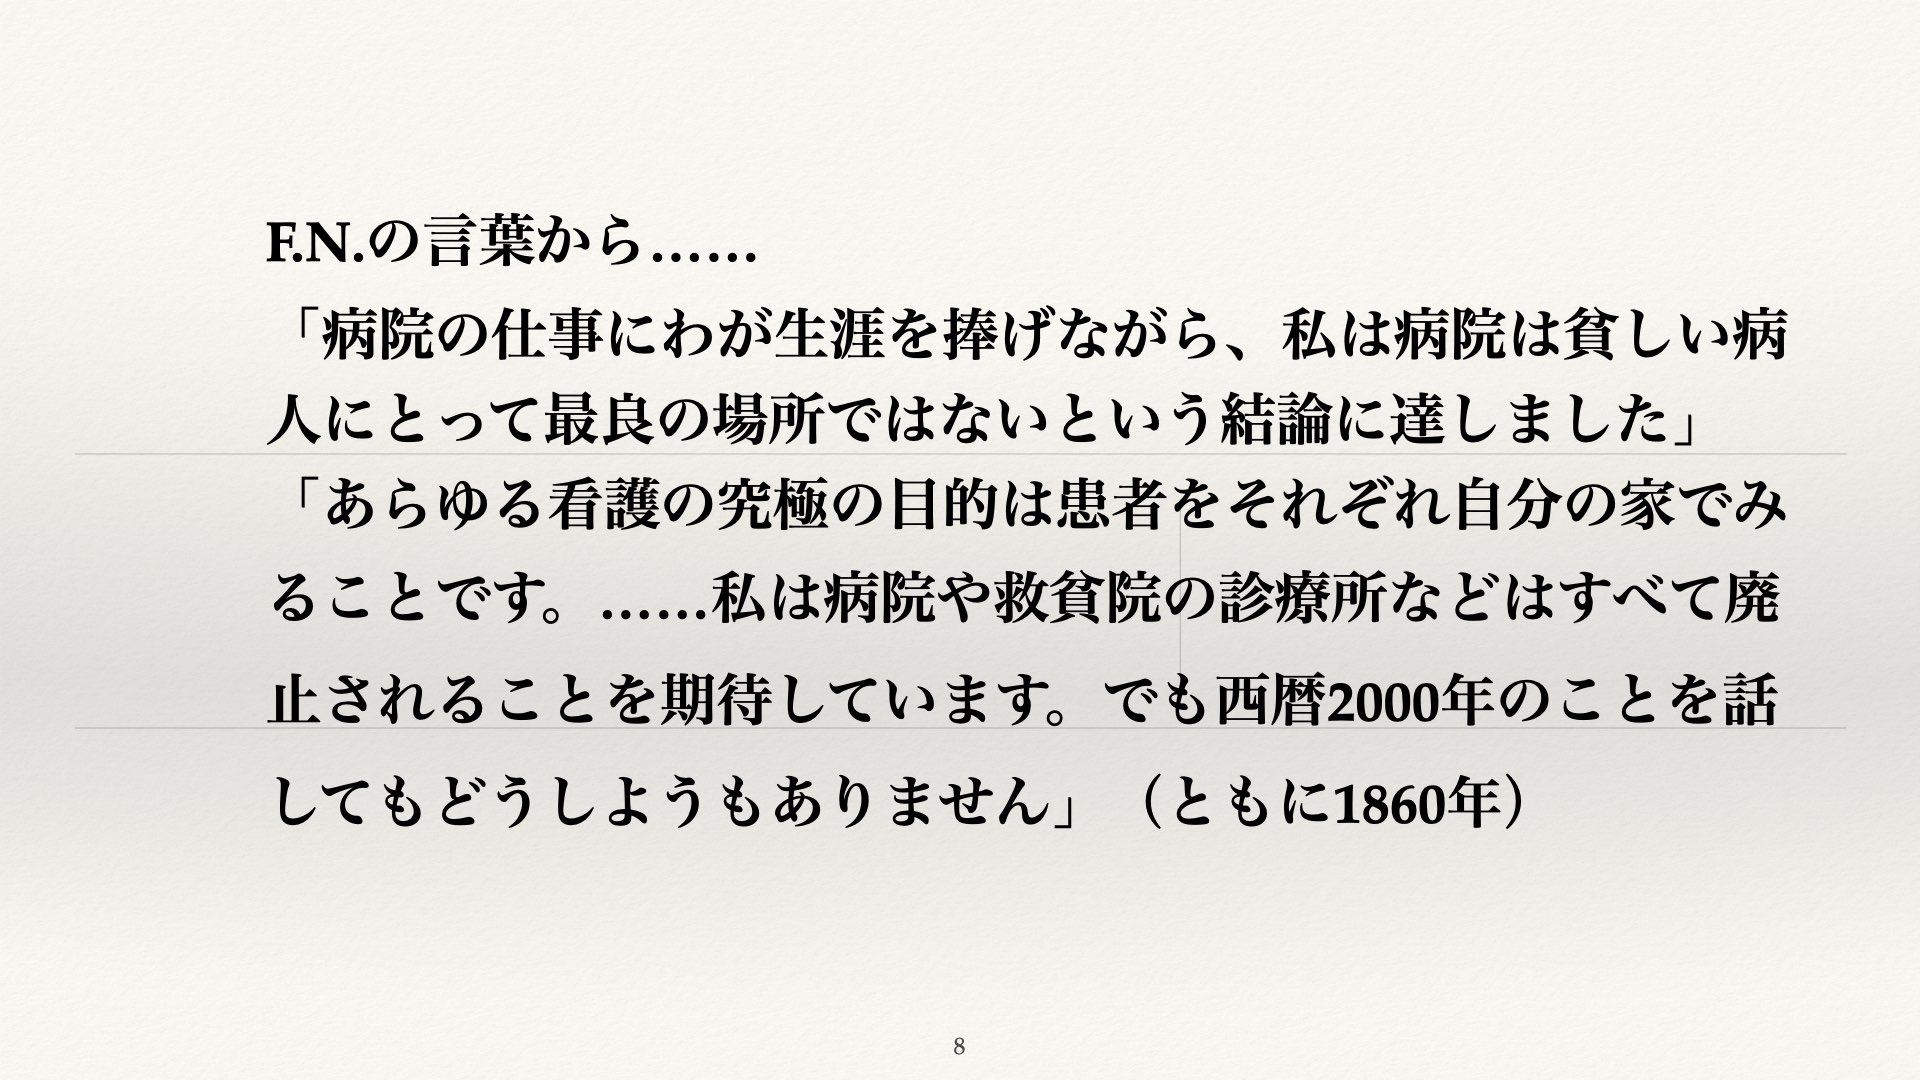 F.N.の言葉から……
「病院の仕事にわが生涯を捧げながら、私は病院は貧しい病
人にとって最良の場所ではないという結論に達しました」
「あらゆる看護の究極の目的は患者をそれぞれ自分の家でみ
ることです。……私は病院や救貧院の診療所などはすべて廃
止されることを期待しています。でも西暦2000年のことを話
してもどうしようもありません」（ともに1860年）
8